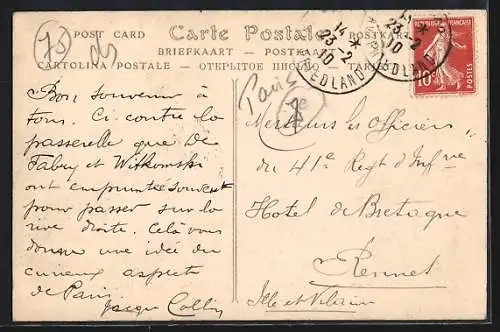 POST CARD Carte Postale POSTKARTE
BRIEFKAART - POSTKAART
CARTOLINA POSTALE - ОТКРЫТОЕ ПИСЬМО - TARJ
14 * 23-2 10
EDLAND
23-2 10
EDLAND
REPUBLIQUE FRANÇAISE
10 POSTES
75
Paris
Bon souvenir à
tous. Ci contre la
passerelle que De
Fabry et Witkowski
ont empruntée souvent
pour passer sur la
rive droite. Cela vous
donne une idée du
curieux aspect
de Paris
Jacques
Messieurs les Officiers
du 41e Regt d'Infrie
Hotel de Bretagne
Rennes
Ille et Vilaine